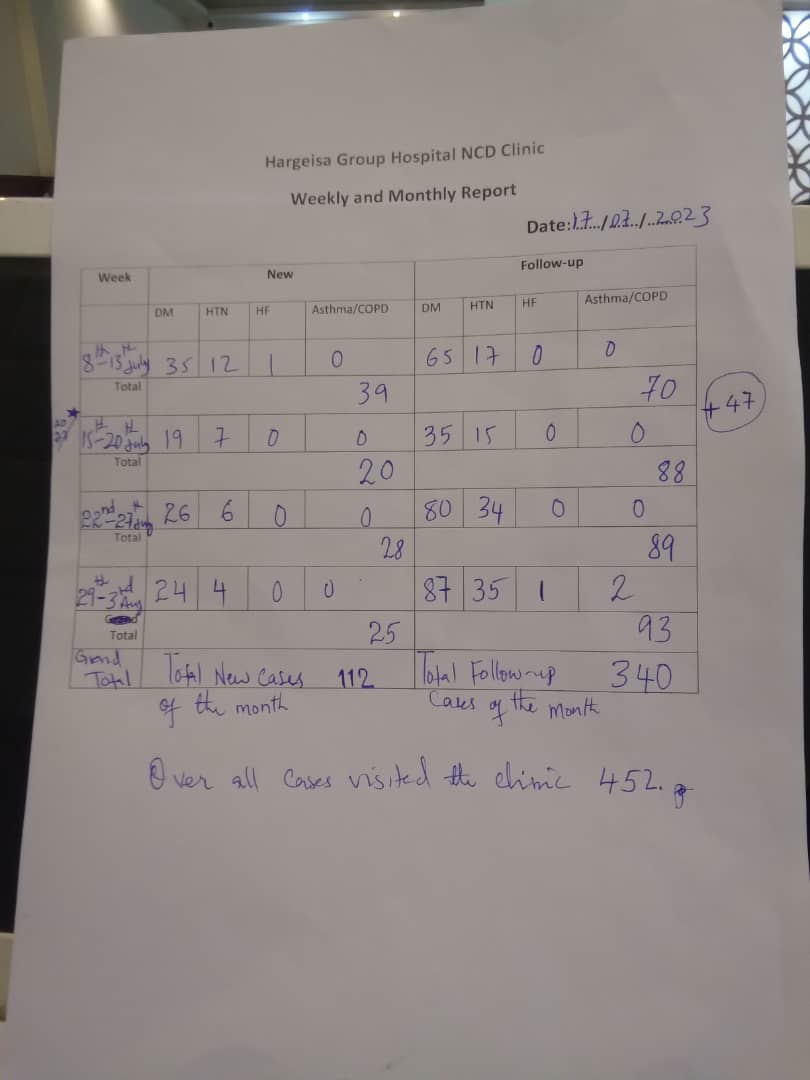 Hargeisa Group Hospital NCD Clinic
Weekly and Monthly Report
Date:17.../07../..2023
Week New Follow-up
DM HTN HF Asthma/COPD DM HTN HF Asthma/COPD
8th-13th July 35 12 1 0 65 17 0 0
Total 39 70
+47
15th-20th July 19 7 0 0 35 15 0 0
Total 20 88
22nd-27th July 26 6 0 0 80 34 0 0
Total 28 89
29th-3rd Aug 24 4 0 0 87 35 1 2
Total 25 93
Grand Total Total New Cases 112 Total Follow-up 340
of the month Cases of the Month
Over all Cases visited the clinic 452.